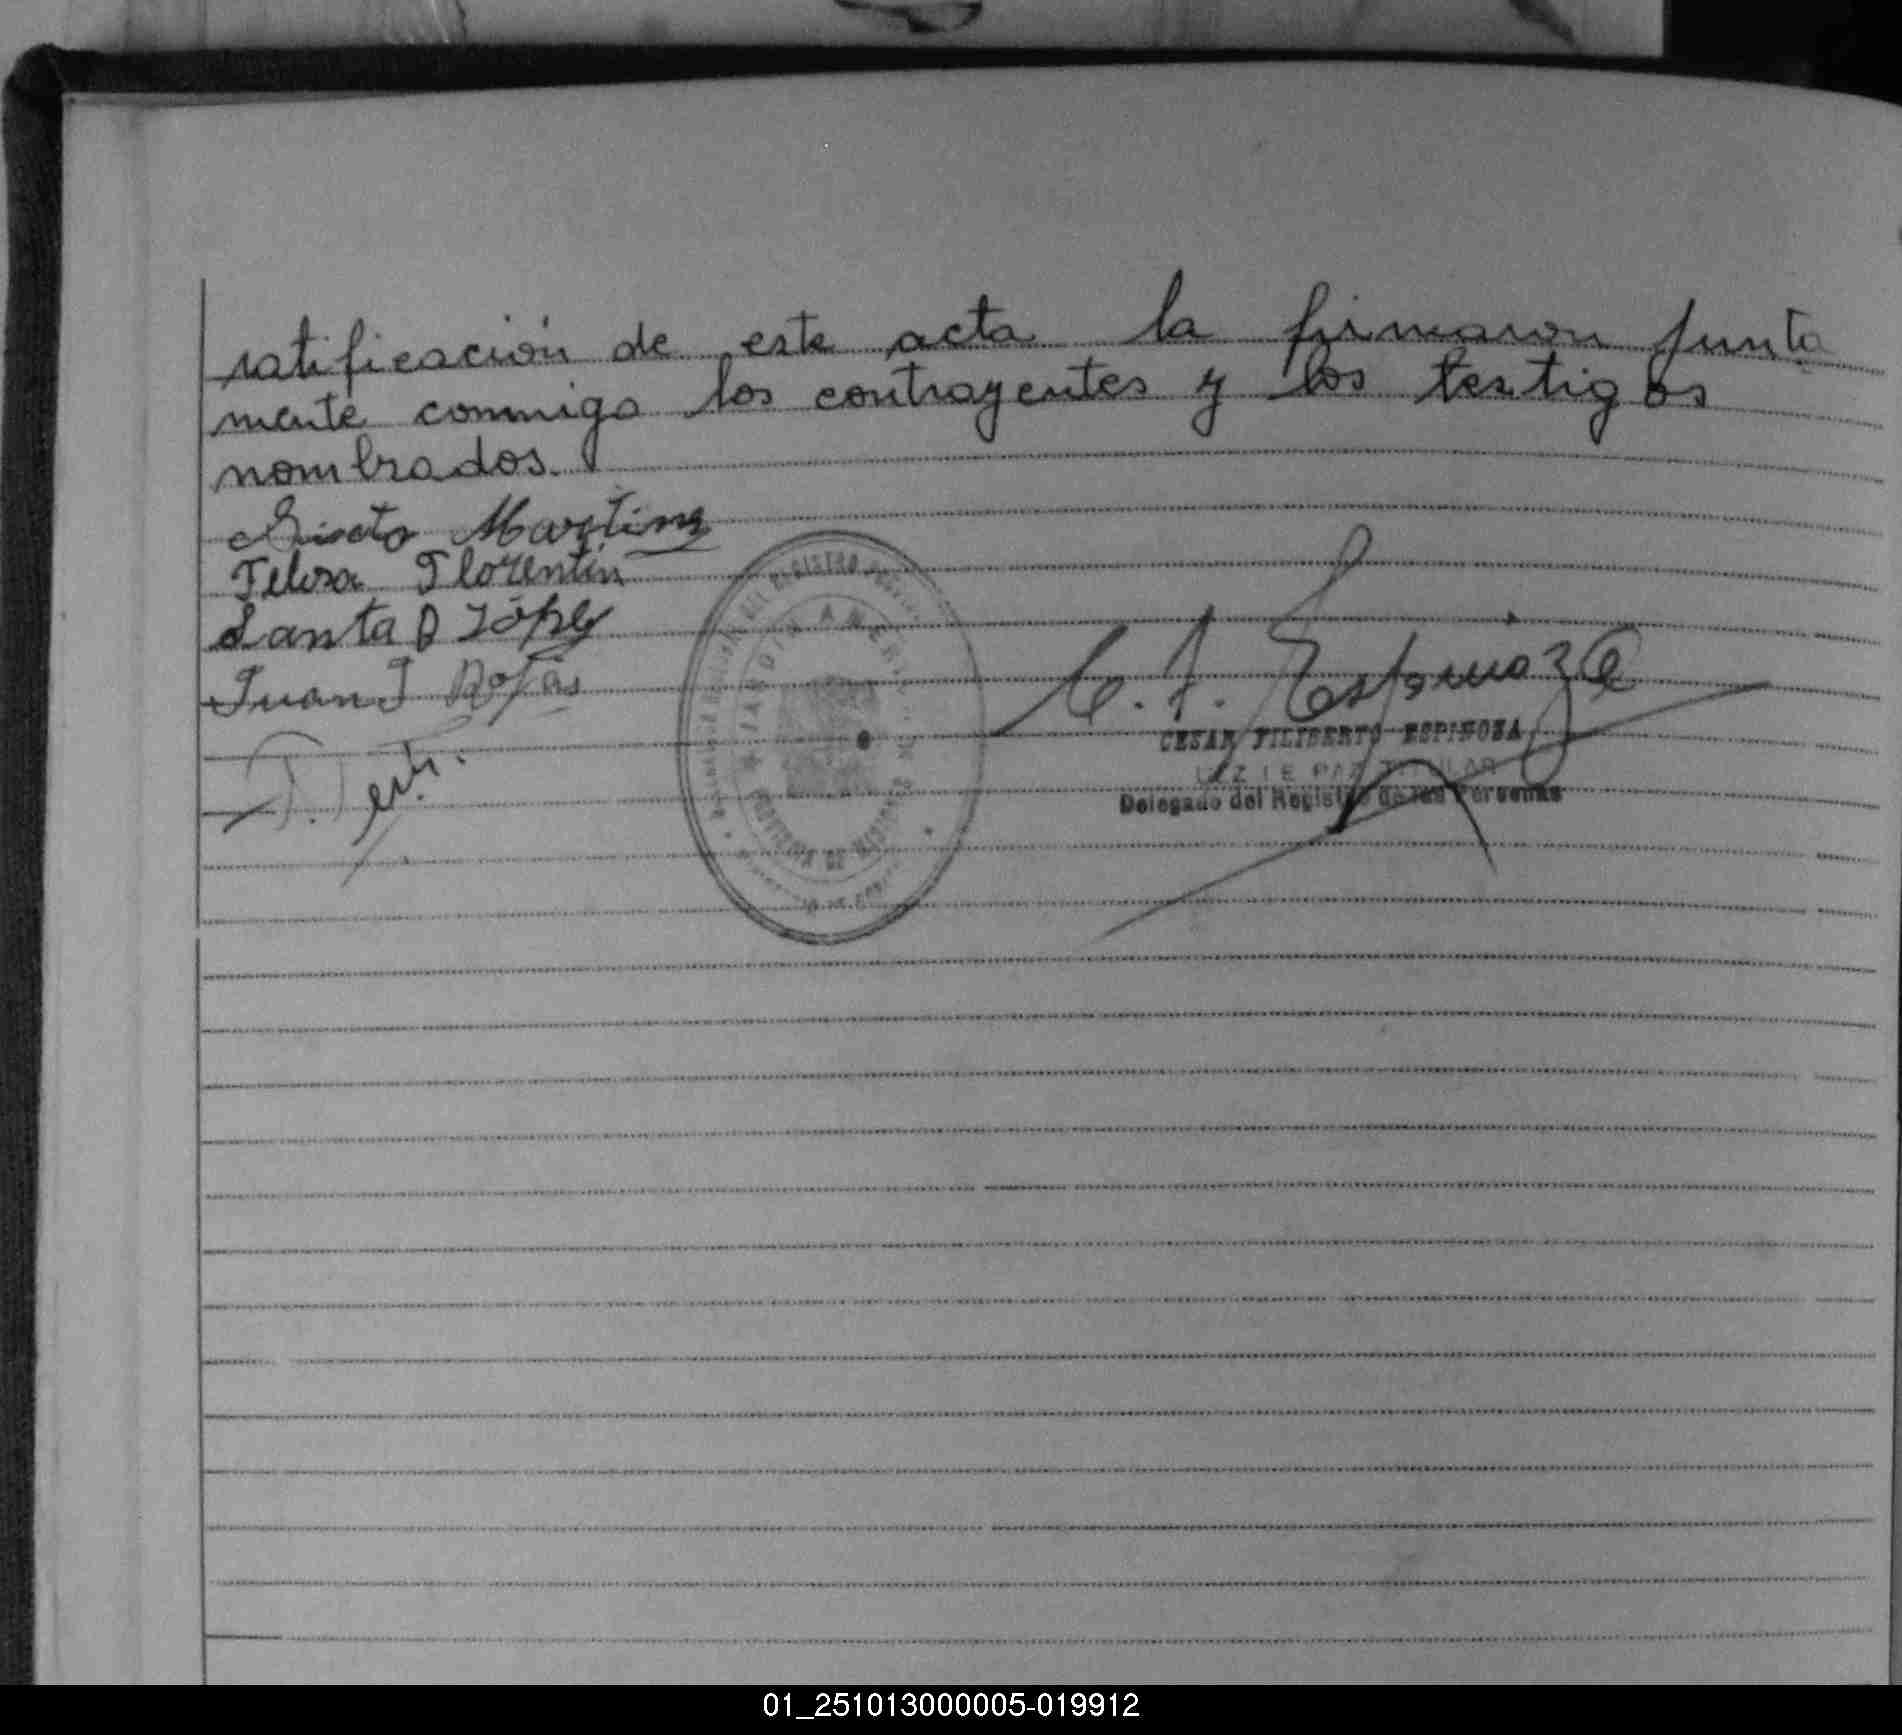 ratificación de este acta la firmaron junta
mente conmigo los contrayentes y los testigos
nombrados.
Sixto Martinez
Telva Florentin
Santa B López
Juan J Rojas
C. F. Espinoza
CESAR FILIBERTO ESPINOZA
JUEZ DE PAZ TITULAR
Delegado del Registro de las Personas
PROVINCIA DE MISIONES
01_251013000005-019912